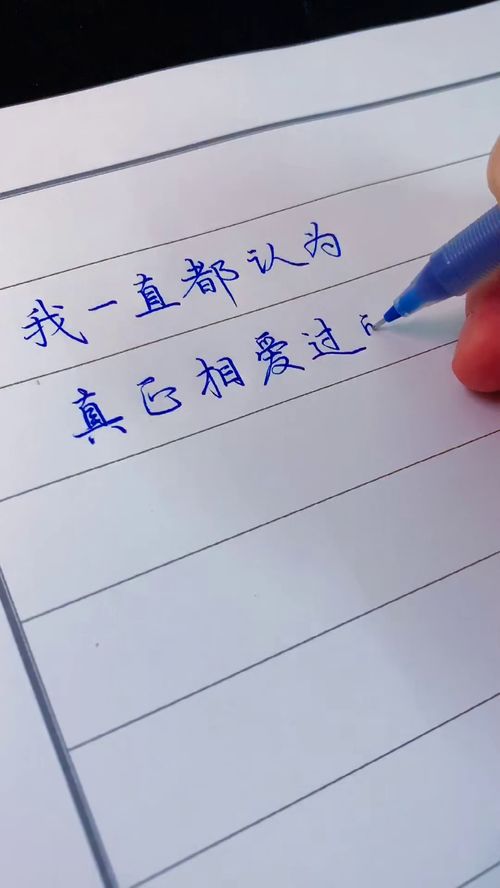 我一直都认为
真正相爱过